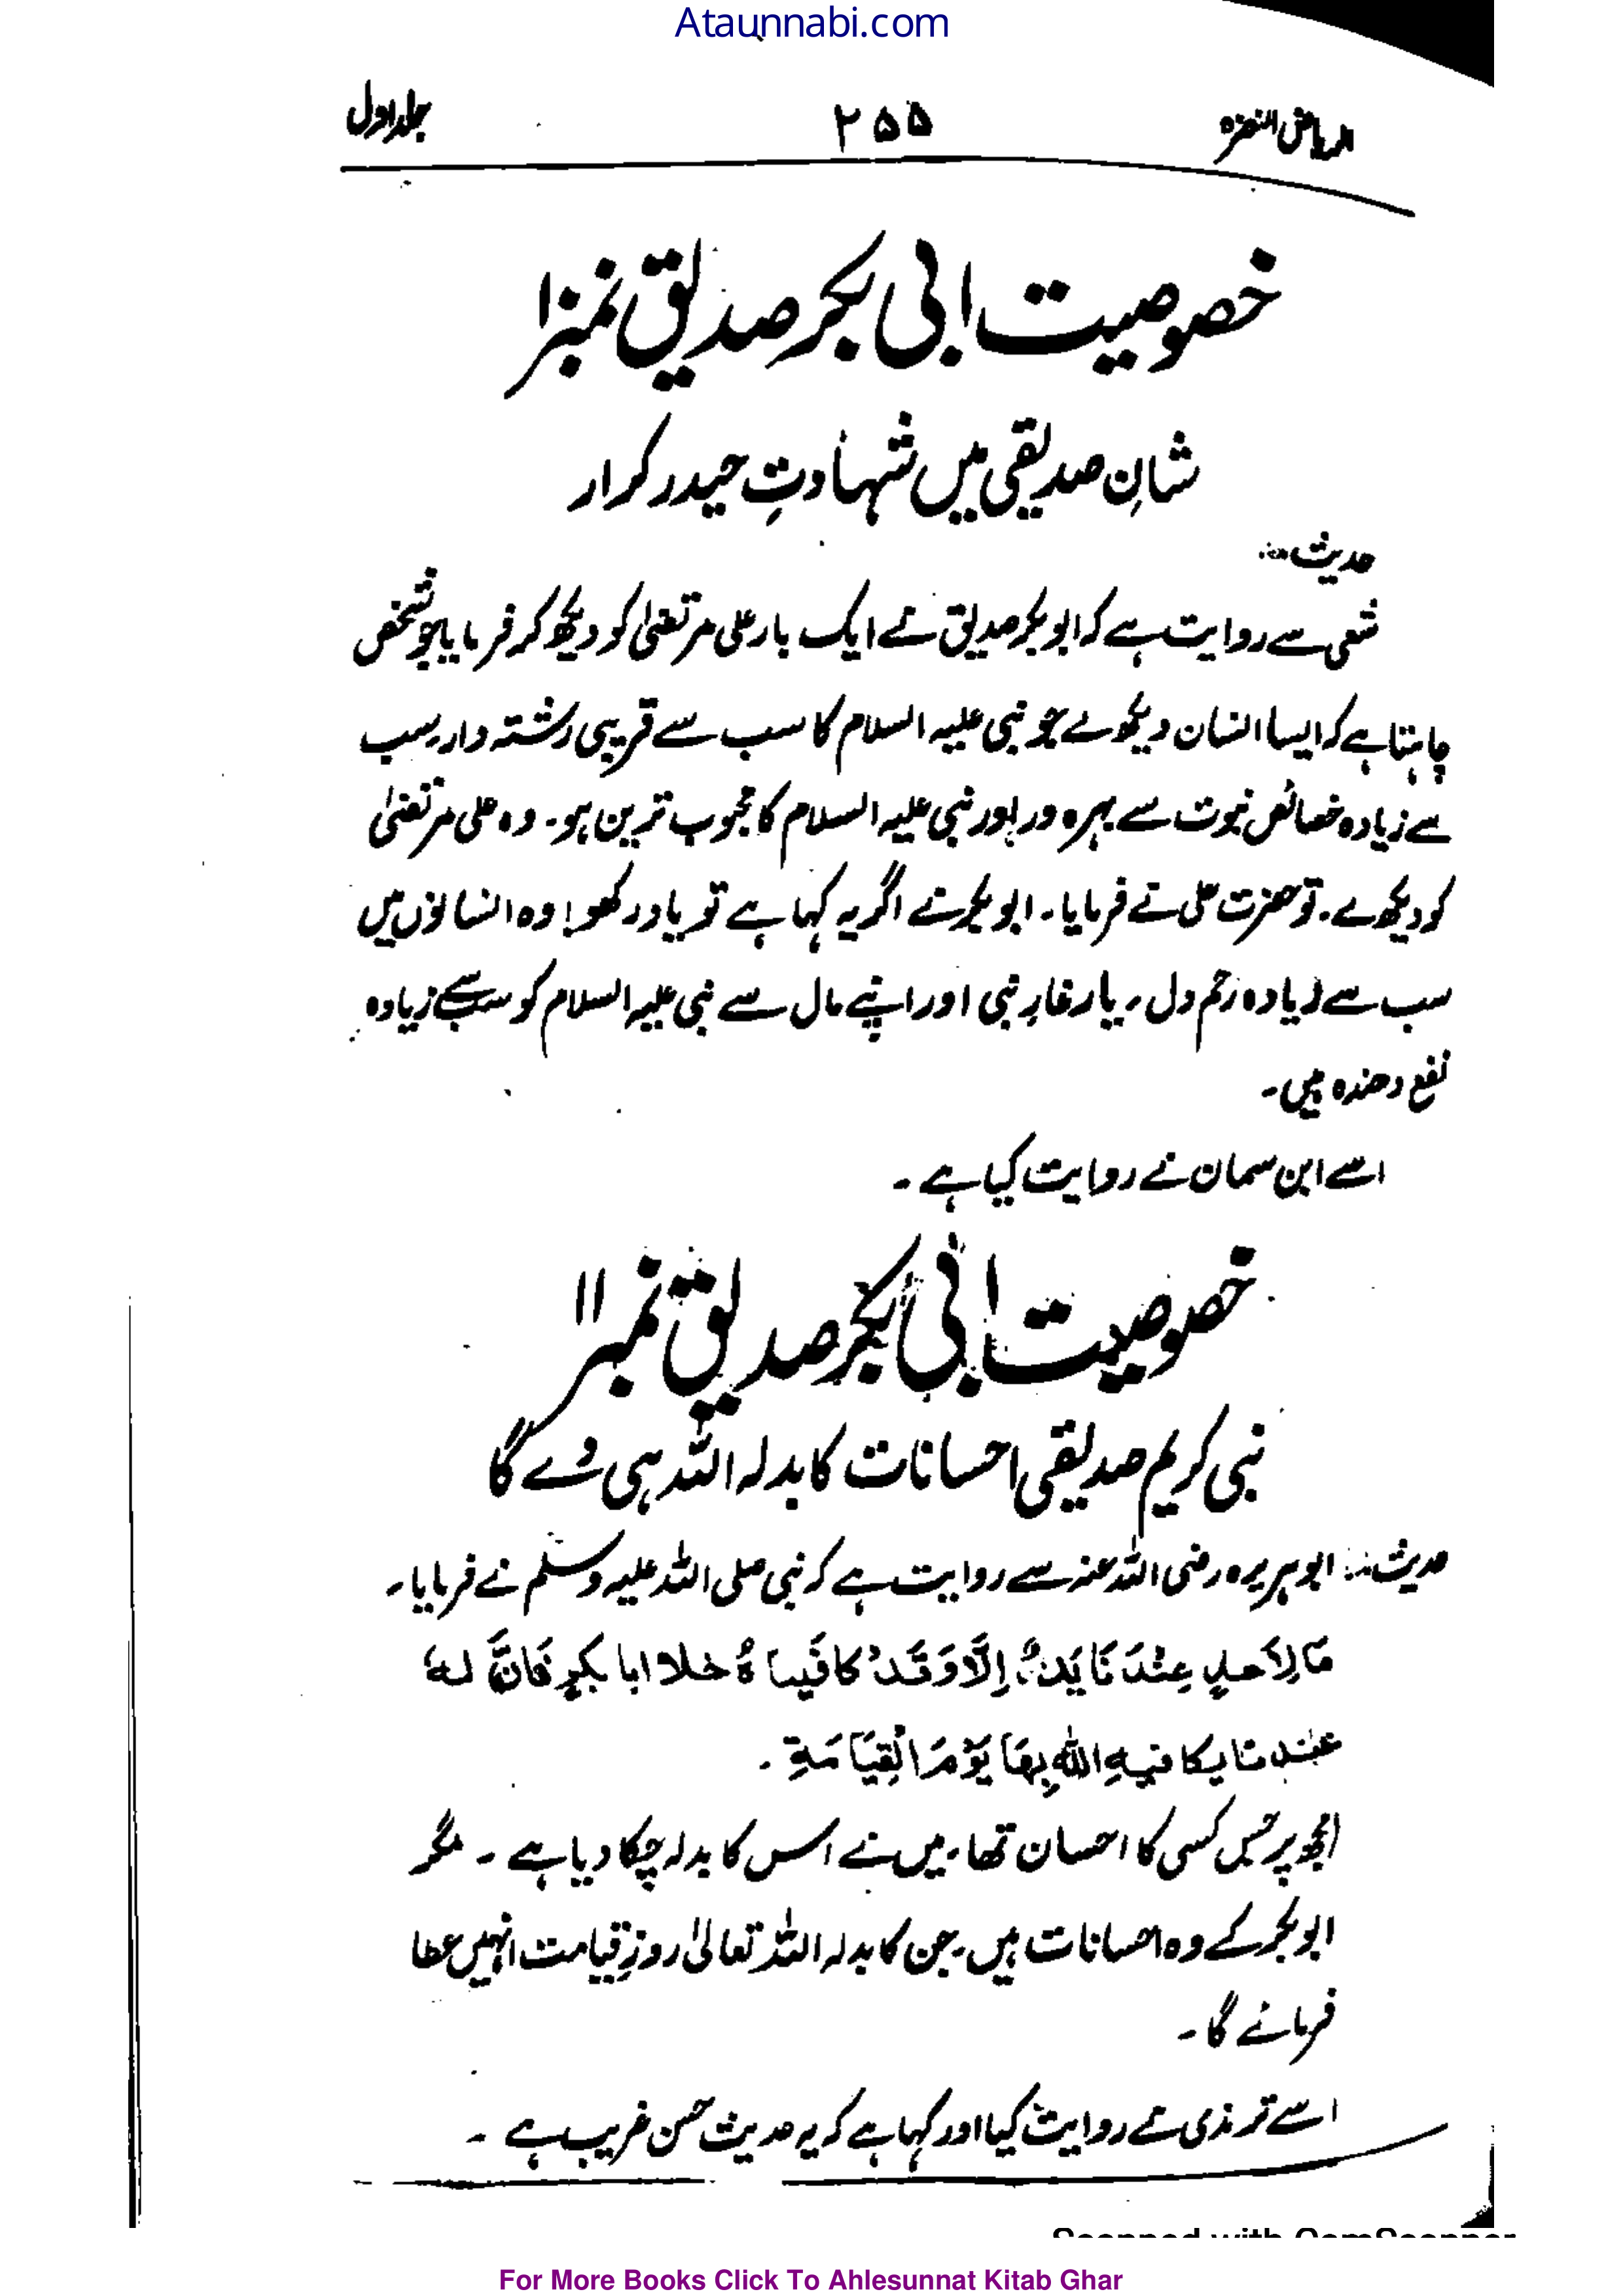 Ataunnabi.com
الریاض النضرہ ۲۵۵ جلد اول
خصوصیت ابی بکر صدیق نمبر۱۰
شانِ صدیقی میں شہادتِ حیدر کرار
حدیث:
شعبی سے روایت ہے کہ ابو بکر صدیق نے ایک بار علی مرتضیٰ کو دیکھ کر فرمایا جو شخص
چاہتا ہے کہ ایسا انسان دیکھے جو نبی علیہ السلام کا سب سے قریبی رشتہ دار، سب
سے زیادہ خصائص نبوت سے بہرہ ور اور نبی علیہ السلام کا محبوب ترین ہو۔ وہ علی مرتضیٰ
کو دیکھ لے۔ تو حضرت علی نے فرمایا۔ ابو بکر نے اگر یہ کہا ہے تو یاد رکھو! وہ انسانوں میں
سب سے زیادہ رحم دل، یار غار نبی اور اپنے مال سے نبی علیہ السلام کو سب سے زیادہ
نفع دھندہ ہیں۔
اسے ابن سمان نے روایت کیا ہے۔
خصوصیت ابی بکر صدیق نمبر ۱۱
نبی کریم صدیقی احسانات کا بدلہ اللہ ہی دے گا
حدیث: ابو ہریرہ رضی اللہ عنہ سے روایت ہے کہ نبی صلی اللہ علیہ وسلم نے فرمایا۔
مَا لِاَحدٍ عِنْدَنَا یَدٌ اِلَّا وَقَدْ کَافَیناہُ خلا ابا بکرٍ فَاِنَّ لہٗ
عند نا یکا فیہِ اللہُ بِھَا یَوْمَ الْقِیَامَۃِ۔
مجھ پر جس کسی کا احسان تھا، میں نے اس کا بدلہ چکا دیا ہے ۔ مگر
ابو بکر کے وہ احسانات ہیں، جن کا بدلہ اللہ تعالیٰ روزِ قیامت انہیں عطا
فرمائے گا۔
اسے ترمذی نے روایت کیا اور کہا ہے کہ یہ حدیث حسن غریب ہے ۔
Scanned with CamScanner
For More Books Click To Ahlesunnat Kitab Ghar